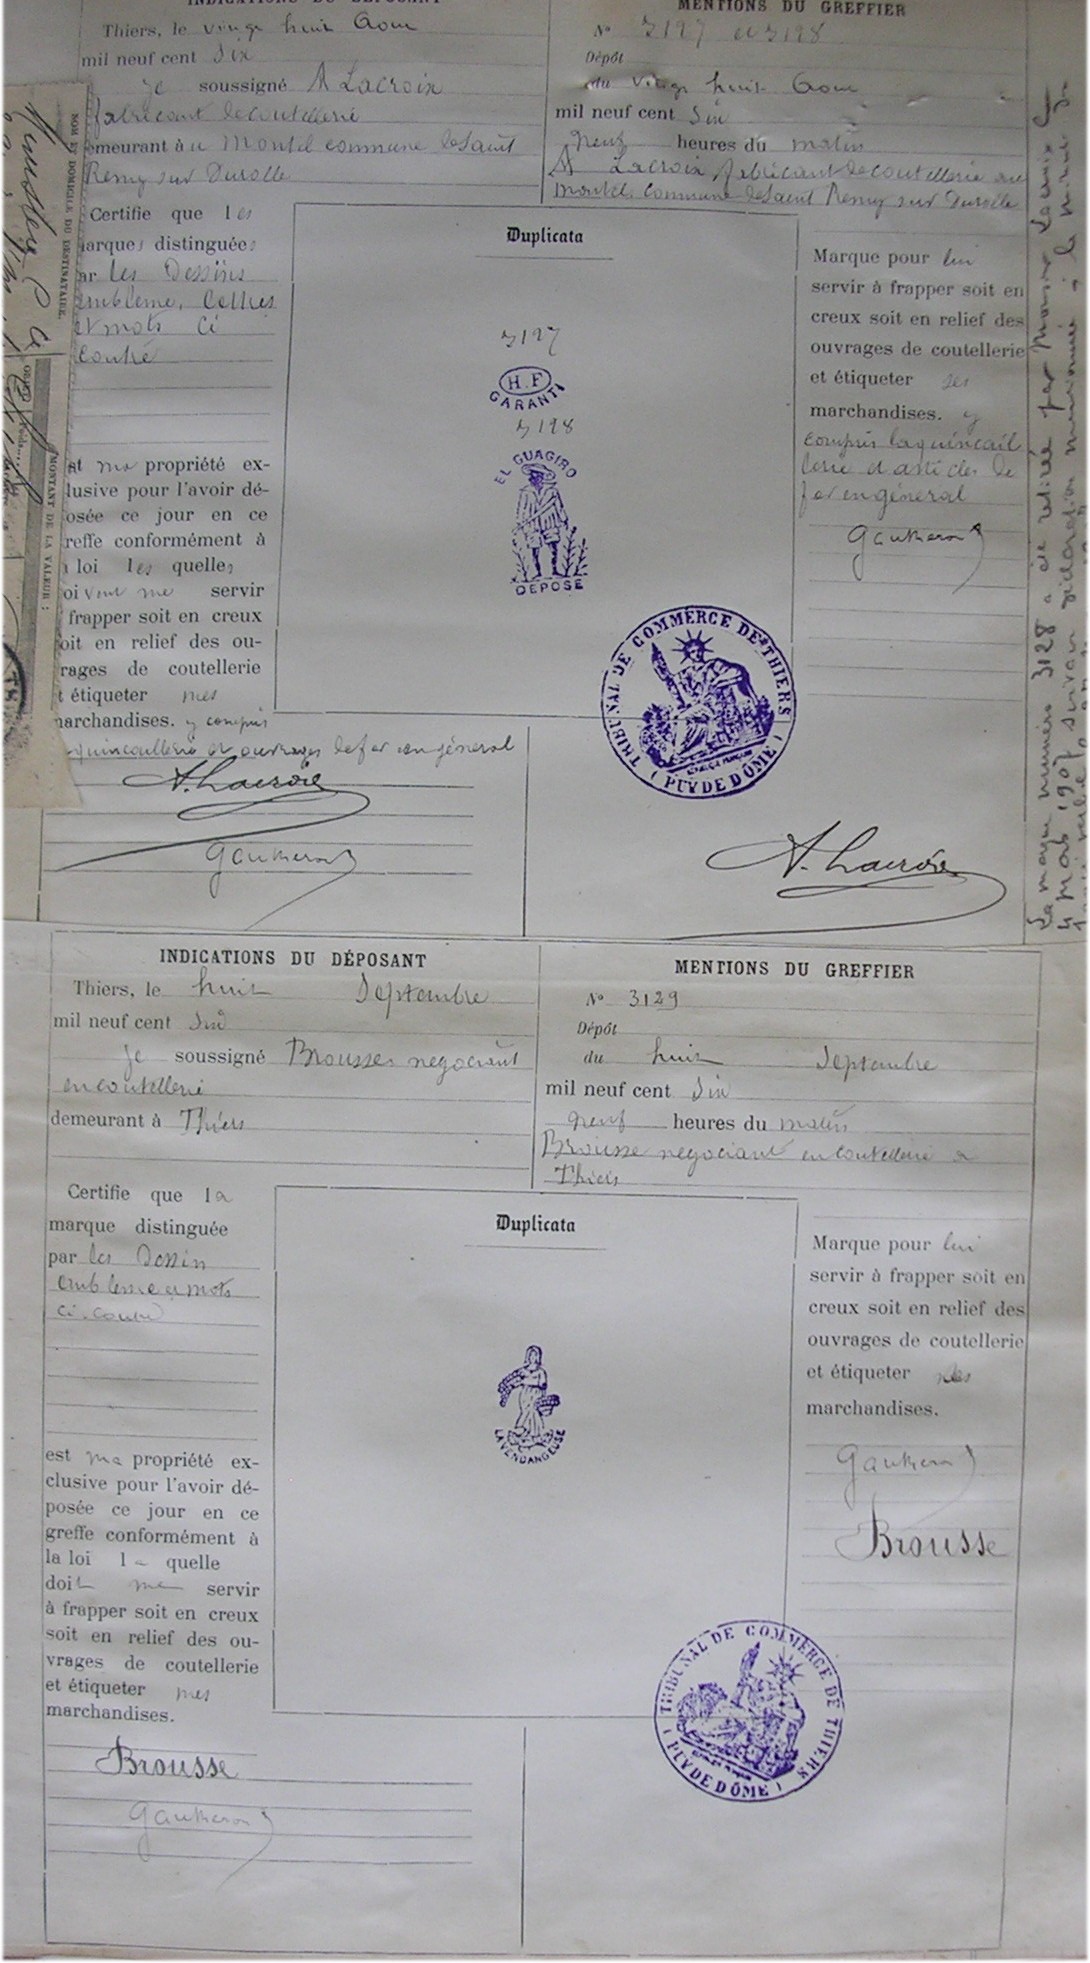 INDICATIONS DU DÉPOSANT
Thiers, le vingt huit Aout
mil neuf cent Six
je soussigné A Lacroix
fabricant de coutellerie
emeurant à u Montel commune de Saint
Remy sur Durolle
Certifie que les
marques distinguées
ar les Dessins
emblème, lettres
et mots ci
contre
st ma propriété ex-
lusive pour l'avoir dé-
osée ce jour en ce
reffe conformément à
a loi les quelles
oivent me servir
frapper soit en creux
oit en relief des ou-
rages de coutellerie
t étiqueter mes
marchandises. y compris
quincaillerie et ouvrages de fer en général
A. Lacroix
Gautheron
NOM ET DOMICILE DU DESTINATAIRE.
MONTANT DE LA VALEUR :
Duplicata
3127
H.F
GARANTI
3128
EL GUAGIRO
DEPOSE
TRIBUNAL DE COMMERCE DE THIERS
( PUY DE DÔME )
MENTIONS DU GREFFIER
N° 3127 et 3128
Dépôt
du vingt huit Aout
mil neuf cent Six
neuf heures du matin
A Lacroix, fabricant de coutellerie au
Montel commune de Saint Remy sur Durolle
Marque pour lui
servir à frapper soit en
creux soit en relief des
ouvrages de coutellerie
et étiqueter ses
marchandises. y
compris la quincail
lerie et articles de
fer en général
Gautheron
A. Lacroix
La marque numéro 3128 a été retirée par Monsieur Lacroix
4 Mars 1907 suivant déclaration mentionnée à la minute
INDICATIONS DU DÉPOSANT
Thiers, le huit Septembre
mil neuf cent Six
je soussigné Brousse negociant
en coutellerie
demeurant à Thiers
Certifie que la
marque distinguée
par les Dessin
emblème et mots
ci-contre
est ma propriété ex-
clusive pour l'avoir dé-
posée ce jour en ce
greffe conformément à
la loi la quelle
doit me servir
à frapper soit en creux
soit en relief des ou-
vrages de coutellerie
et étiqueter mes
marchandises.
Brousse
Gautheron
Duplicata
LA VENDANGEUSE
TRIBUNAL DE COMMERCE DE THIERS
( PUY DE DÔME )
MENTIONS DU GREFFIER
N° 3129
Dépôt
du huit Septembre
mil neuf cent Six
neuf heures du matin
Brousse negociant en coutellerie a
Thiers
Marque pour lui
servir à frapper soit en
creux soit en relief des
ouvrages de coutellerie
et étiqueter ses
marchandises.
Gautheron
Brousse